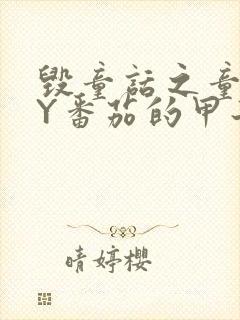 毁童话之童
Y番茄的甲
晴婷樱